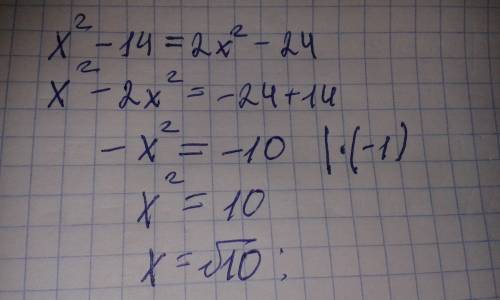 x² - 14 = 2x² - 24
x² - 2x² = -24 + 14
-x² = -10 |·(-1)
x² = 10
x = √10;